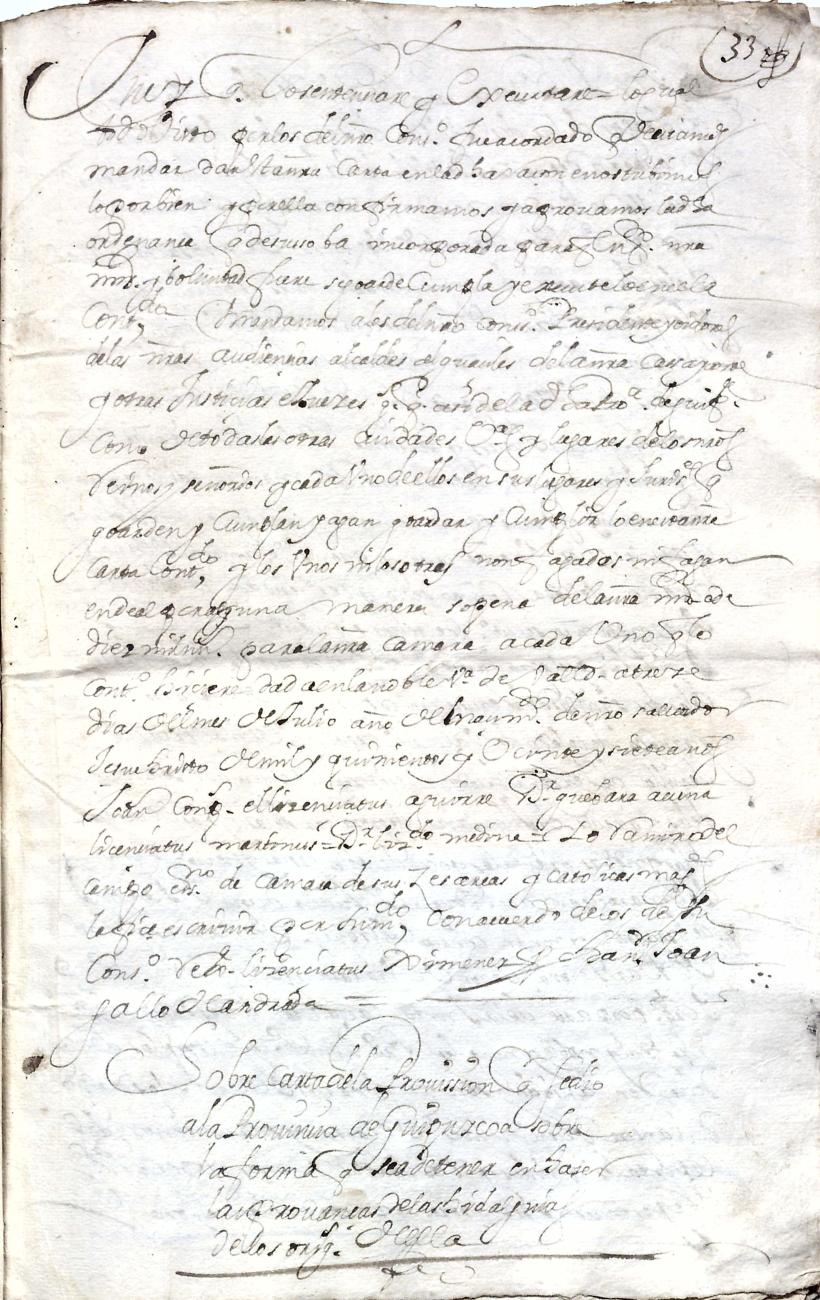 33
Juez q. lo sentenciare y executare = lo qual
todo visto por los del nro Cons.º fue acordado q deviamos
mandar dar esta nra Carta en la dha raçon e nos tubimos
lo por bien y por ella confirmamos y aprovamos la dha
ordenança q de suso ba incorporada para q en qto nra
mrd. y boluntad fuere se guarde Cumpla y execute lo en ella
Contdo, y mandamos a los del nro Cons.º Presidente y oidores
de las nras audiencias alcaldes alguaciles de la nra Cassa y corte
y otras Justicias e Jueces q. asi de la dha Prova. de guipca.
Como de todas las otras ciudades Vas y lugares de los nros
Reinos y señorios y cada Uno de ellos en sus lugares y Jurisones q
guarden y Cumplan y agan guardar y Cumplir lo en esta nra
Carta Contdo, y los Unos ni los otros non fagades ni fagan
ende al por alguna manera so pena de la nra mrd e de
diez mill mrs. para la nra Camara a cada Uno q lo
Contº. hiciere dada en la noble Va de Valld. a treze
dias del mes de Julio año del nacimº. de nro salvador
Jesuchristo de mil y quinientos y Veinte y siete años
Joan Conps. el licenciatus aguirre Dr. guebara acuña
licenciatus martinus = Dr. liz.do medina = Yo Ramiro del
campo esno. de camara de sus Zesareas y catolicas mags
la fize escrivir por su mdo, con acuerdo de los de su
Cons.º Reg.da- lizenciatus Ximenez por chanr. Joan
gallo de andrada =
Sobre Carta de la Provission q se dio
a la Provincia de Guipuzcoa sobre
la forma q sea de tener en hazer
las provanças de las hidalguias
de los orig.s della